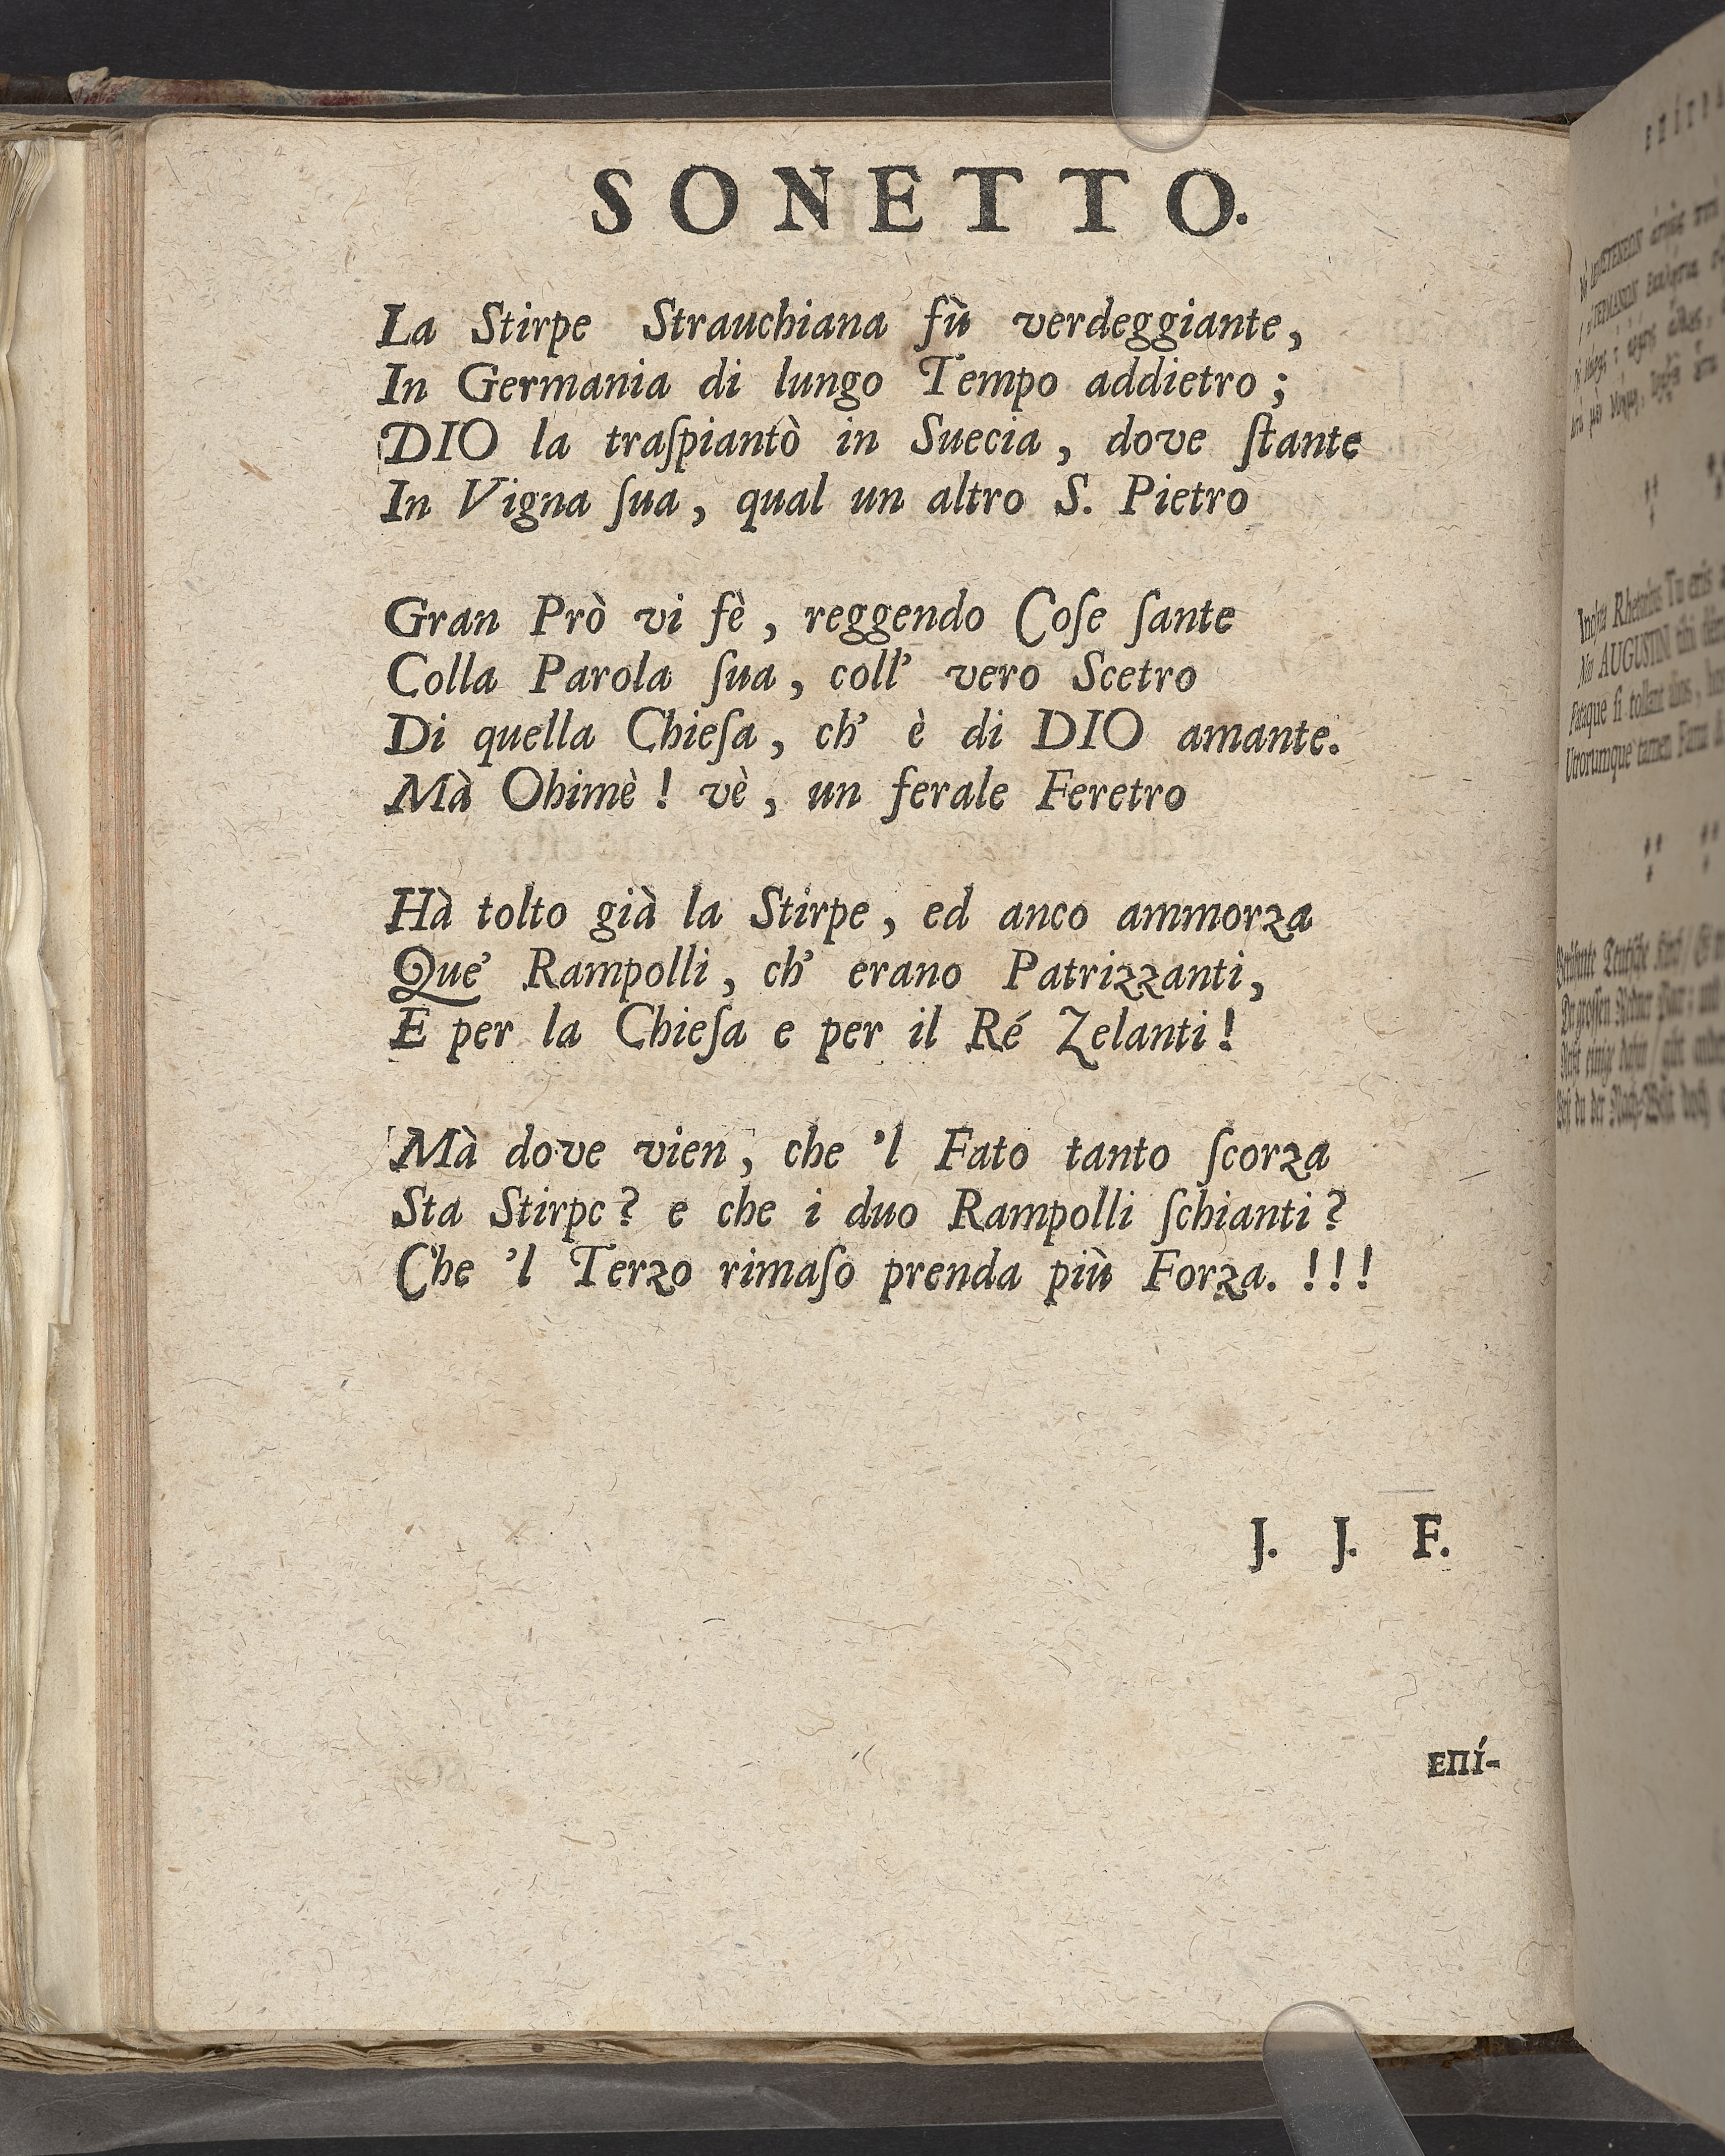 SONETTO.
La Stirpe Strauchiana fù verdeggiante,
In Germania di lungo Tempo addietro;
DIO la traſpiantò in Suecia, dove ſtante
In Vigna ſua, qual un altro S. Pietro
Gran Prò vi fè, reggendo Coſe ſante
Colla Parola ſua, coll' vero Scetro
Di quella Chieſa, ch' è di DIO amante.
Mà Ohimè! vè, un ferale Feretro
Hà tolto già la Stirpe, ed anco ammorza
Que' Rampolli, ch' erano Patrizzanti,
E per la Chieſa e per il Ré Zelanti!
Mà dove vien, che 'l Fato tanto ſcorza
Sta Stirpc? e che i duo Rampolli ſchianti?
Che 'l Terzo rimaſo prenda più Forza. !!!
J. J. F.
ΕΠΊ-
Inclyta Rhetorius Tu eris
AUGUSTIN tibi
ſi tollant alios,
Utrorumque tamen Fama